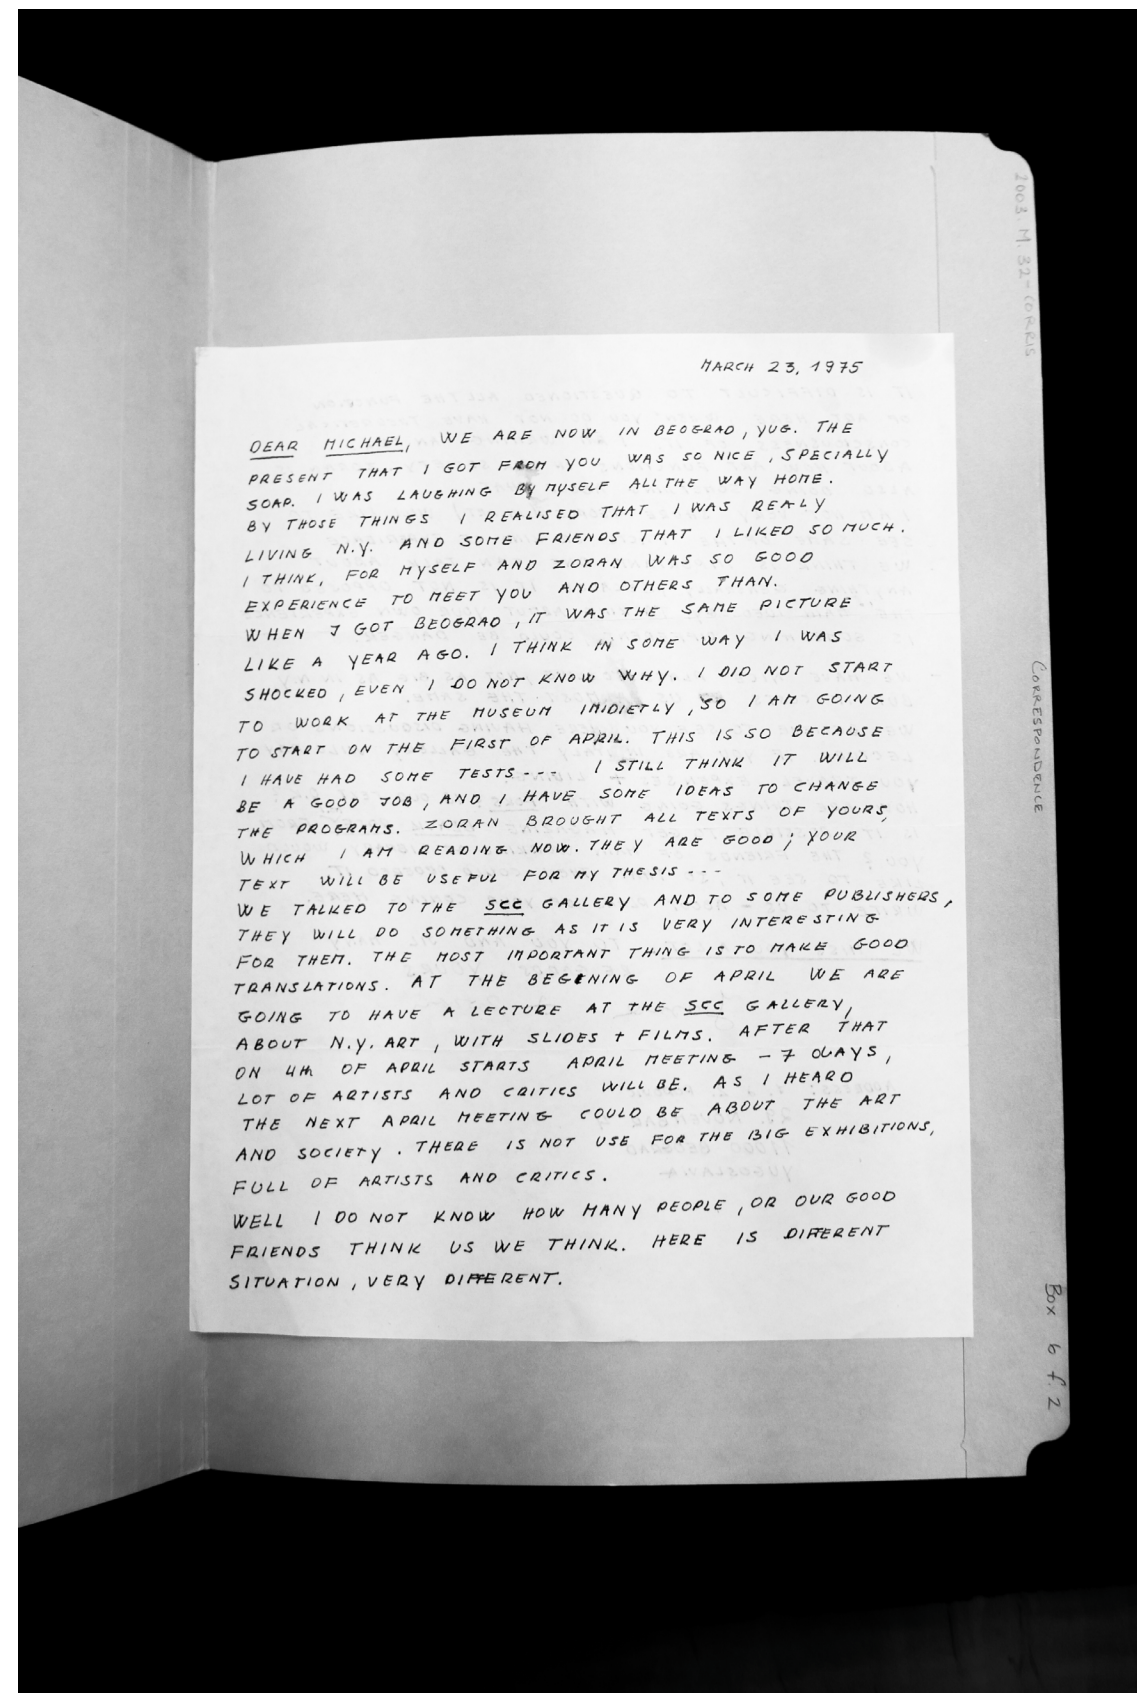 MARCH 23, 1975
DEAR MICHAEL, WE ARE NOW IN BEOGRAD, YUG. THE
PRESENT THAT I GOT FROM YOU WAS SO NICE, SPECIALLY
SOAP. I WAS LAUGHING BY MYSELF ALL THE WAY HOME.
BY THOSE THINGS I REALISED THAT I WAS REALY
LIVING N.Y. AND SOME FRIENDS THAT I LIKED SO MUCH.
I THINK, FOR MYSELF AND ZORAN WAS SO GOOD
EXPERIENCE TO MEET YOU AND OTHERS THAN.
WHEN I GOT BEOGRAD, IT WAS THE SAME PICTURE
LIKE A YEAR AGO. I THINK IN SOME WAY I WAS
SHOCKED, EVEN I DO NOT KNOW WHY. I DID NOT START
TO WORK AT THE MUSEUM IMIDIETLY, SO I AM GOING
TO START ON THE FIRST OF APRIL. THIS IS SO BECAUSE
I HAVE HAD SOME TESTS--- I STILL THINK IT WILL
BE A GOOD JOB, AND I HAVE SOME IDEAS TO CHANGE
THE PROGRAMS. ZORAN BROUGHT ALL TEXTS OF YOURS,
WHICH I AM READING NOW. THEY ARE GOOD; YOUR
TEXT WILL BE USEFUL FOR MY THESIS---
WE TALKED TO THE SCC GALLERY AND TO SOME PUBLISHERS,
THEY WILL DO SOMETHING AS IT IS VERY INTERESTING
FOR THEM. THE MOST IMPORTANT THING IS TO MAKE GOOD
TRANSLATIONS. AT THE BEGINING OF APRIL WE ARE
GOING TO HAVE A LECTURE AT THE SCC GALLERY,
ABOUT N.Y. ART, WITH SLIDES + FILMS. AFTER THAT
ON 4th OF APRIL STARTS APRIL MEETING - 7 DAYS,
LOT OF ARTISTS AND CRITICS WILL BE. AS I HEARD
THE NEXT APRIL MEETING COULD BE ABOUT THE ART
AND SOCIETY. THERE IS NOT USE FOR THE BIG EXHIBITIONS,
FULL OF ARTISTS AND CRITICS.
WELL I DO NOT KNOW HOW MANY PEOPLE, OR OUR GOOD
FRIENDS THINK US WE THINK. HERE IS DIFFERENT
SITUATION, VERY DIFFERENT.
2003.M.32-CORRIS
CORRESPONDENCE
BOX 6 f.2